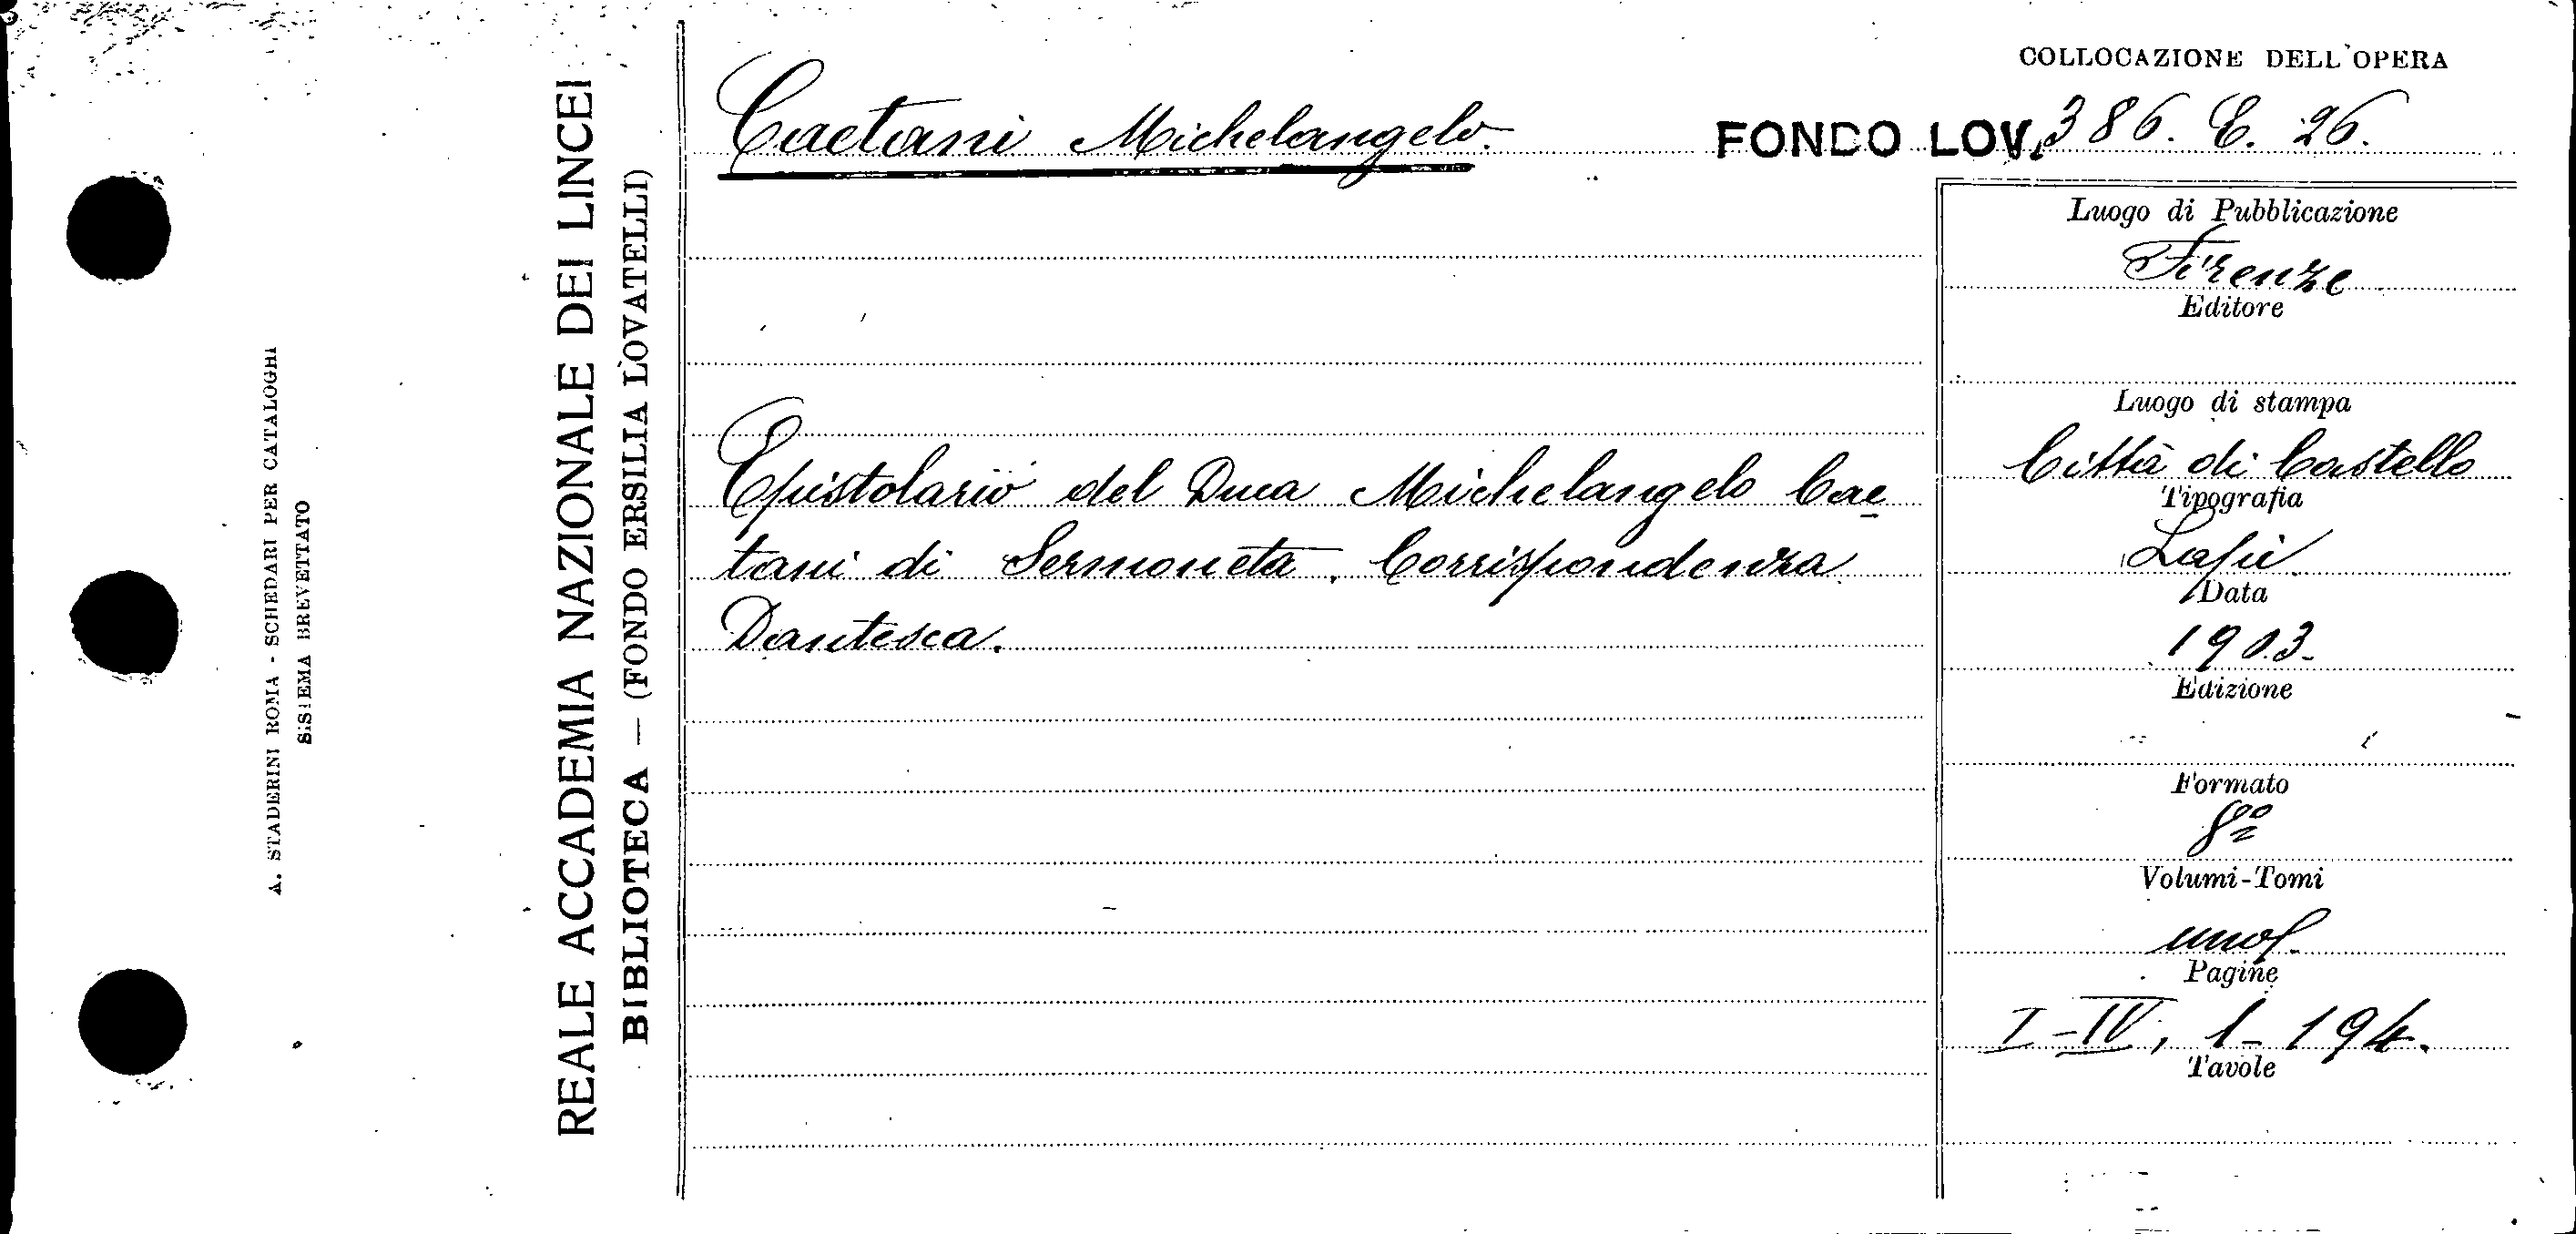 COLLOCAZIONE DELL'OPERA
Caetani Michelangelo. FONDO LOV. 386. E. 26.
Epistolario del Duca Michelangelo Cae
tani di Sermoneta. Corrispondenza
Dantesca.
Luogo di Pubblicazione
Firenze
Editore
Luogo di stampa
Città di Castello
Tipografia
Lapi
Data
1903.
Edizione
Formato
8º
Volumi-Tomi
Pagine
I-IV, 1-194.
Tavole
REALE ACCADEMIA NAZIONALE DEI LINCEI
BIBLIOTECA — (FONDO ERSILIA LOVATELLI)
A. STADERINI ROMA - SCHEDARI PER CATALOGHI
SISTEMA BREVETTATO